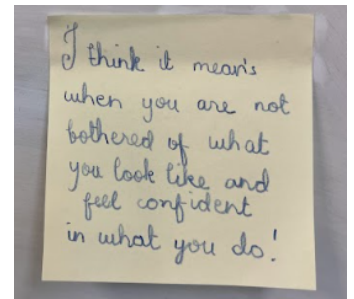 I think it mean's
when you are not
bothered of what
you look like and
feel confident
in what you do!